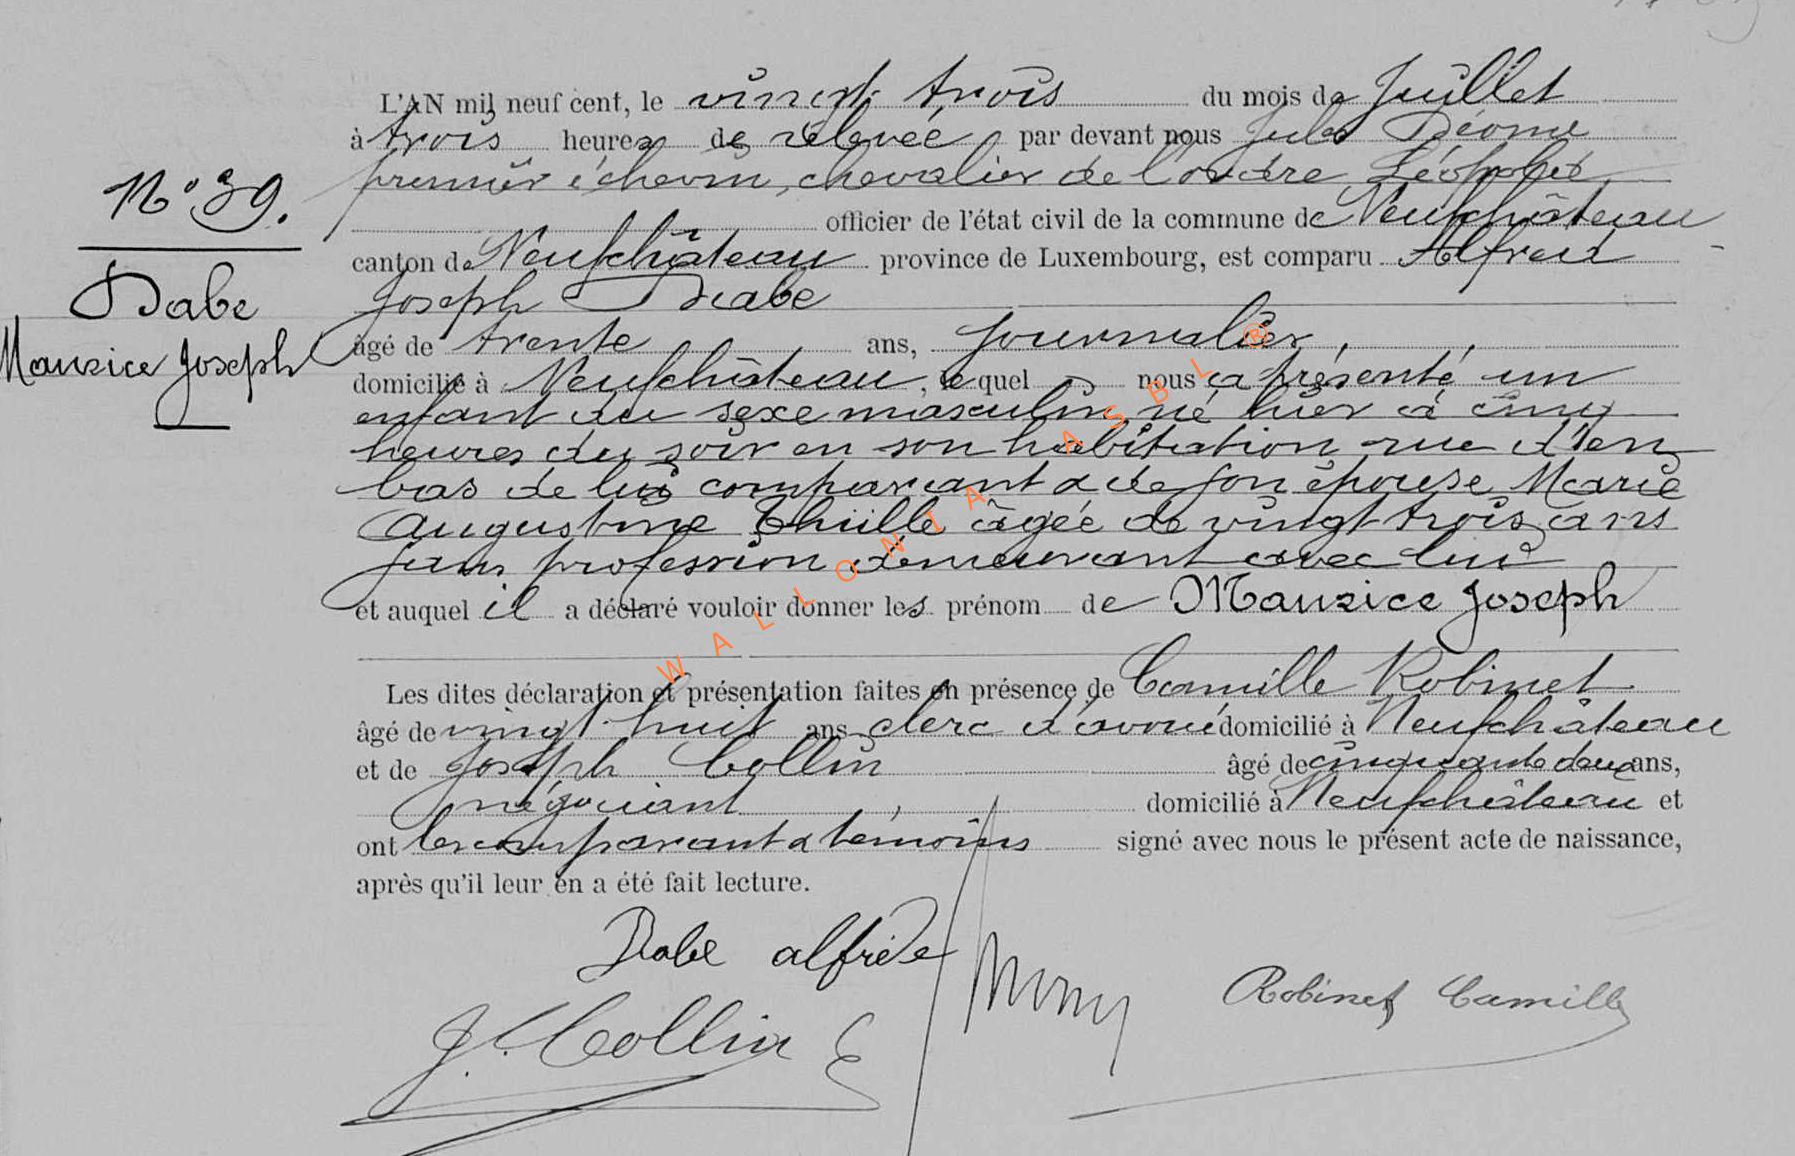 L'AN mil neuf cent, le vingt trois du mois de Juillet
à trois heures de relevée, par devant nous Jules Déome
premier échevin, chevalier de l'ordre Léopold
officier de l'état civil de la commune de Neufchâteau
canton de Neufchâteau province de Luxembourg, est comparu Alfred
Joseph Dabe
âgé de trente ans, journalier,
domicilié à Neufchâteau, lequel nous a présenté un
enfant du sexe masculin né hier à cinq
heures du soir en son habitation rue d'en
bas de lui comparant & de son épouse Marie
Augustine Thiille âgée de vingt trois ans
sans profession demeurant avec lui
et auquel il a déclaré vouloir donner les prénom de Maurice Joseph
Les dites déclaration et présentation faites en présence de Camille Robinet
âgé de vingt huit ans clerc d'avoué domicilié à Neufchâteau
et de Joseph Collin âgé de cinquante deux ans,
négociant domicilié à Neufchâteau et
ont les comparant & témoins signé avec nous le présent acte de naissance,
après qu'il leur en a été fait lecture.
N° 39.
Dabe
Maurice Joseph
Dabe alfride
J. Collin
Robinet Camille
WALLONIA ASBL ®